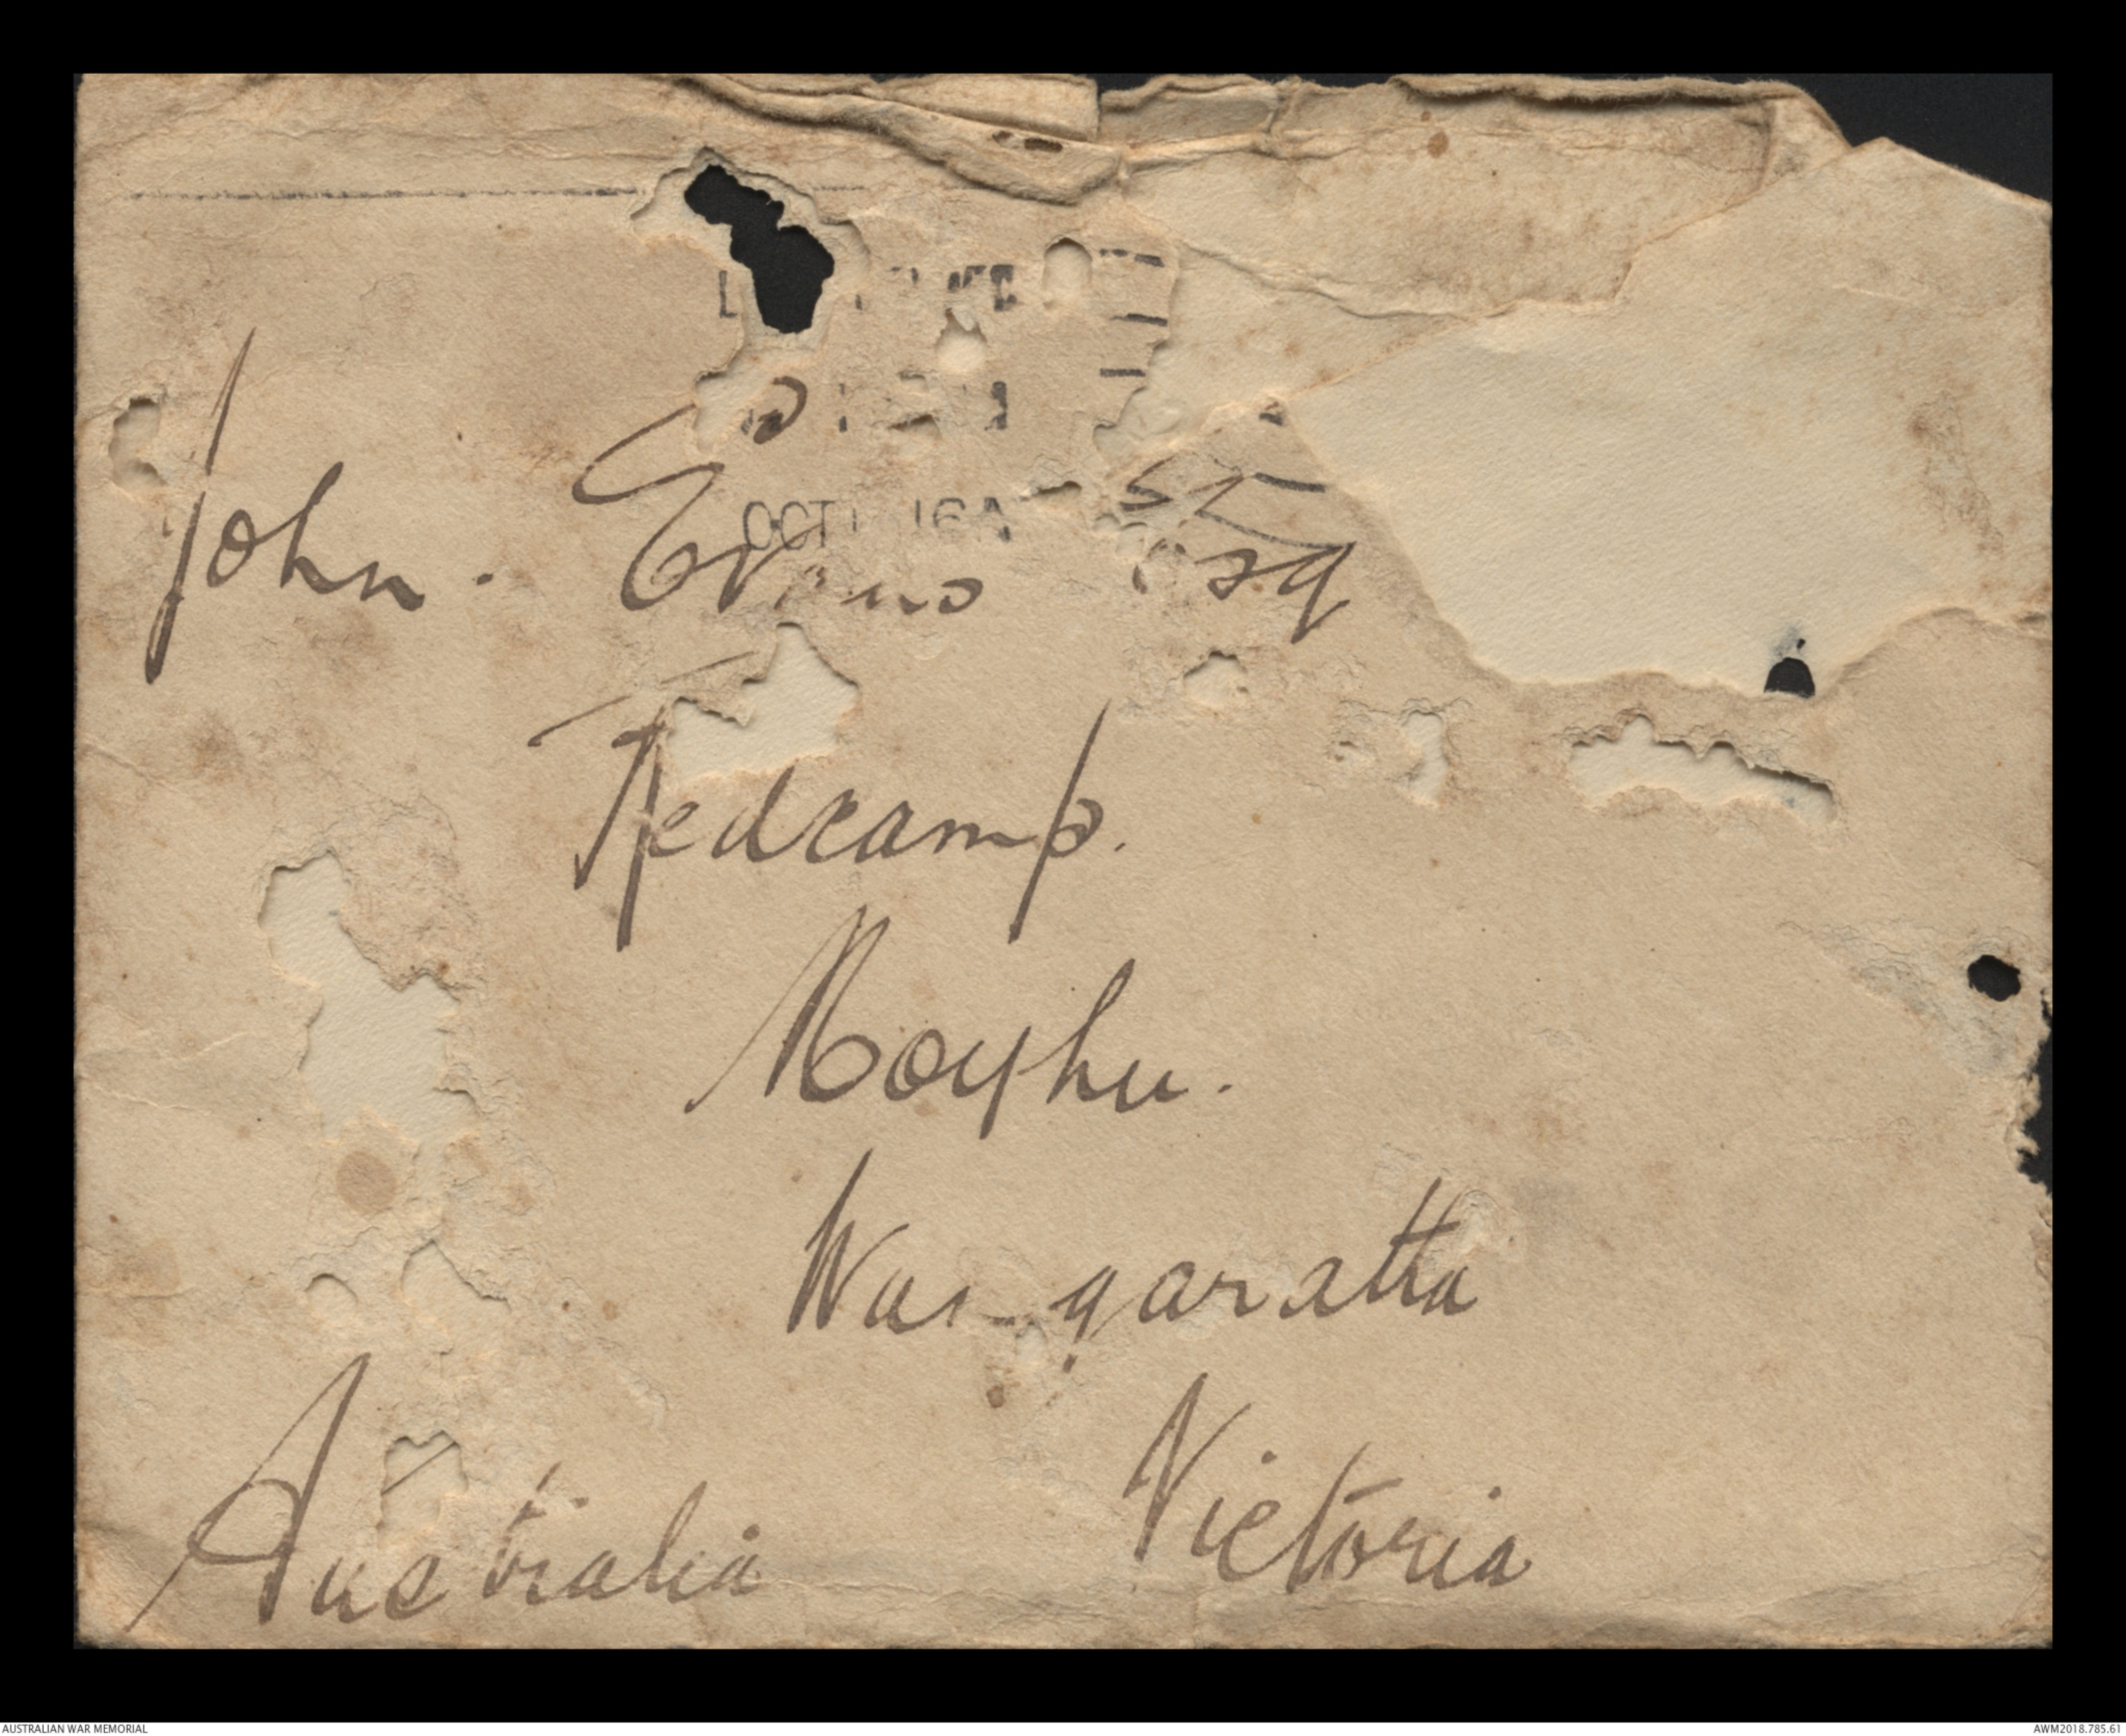 OCT 16A
John. Evans Esq
Redcamp.
Moyhu.
Wangaratta
Victoria
Australia
AUSTRALIAN WAR MEMORIAL
AWM2018.785.61